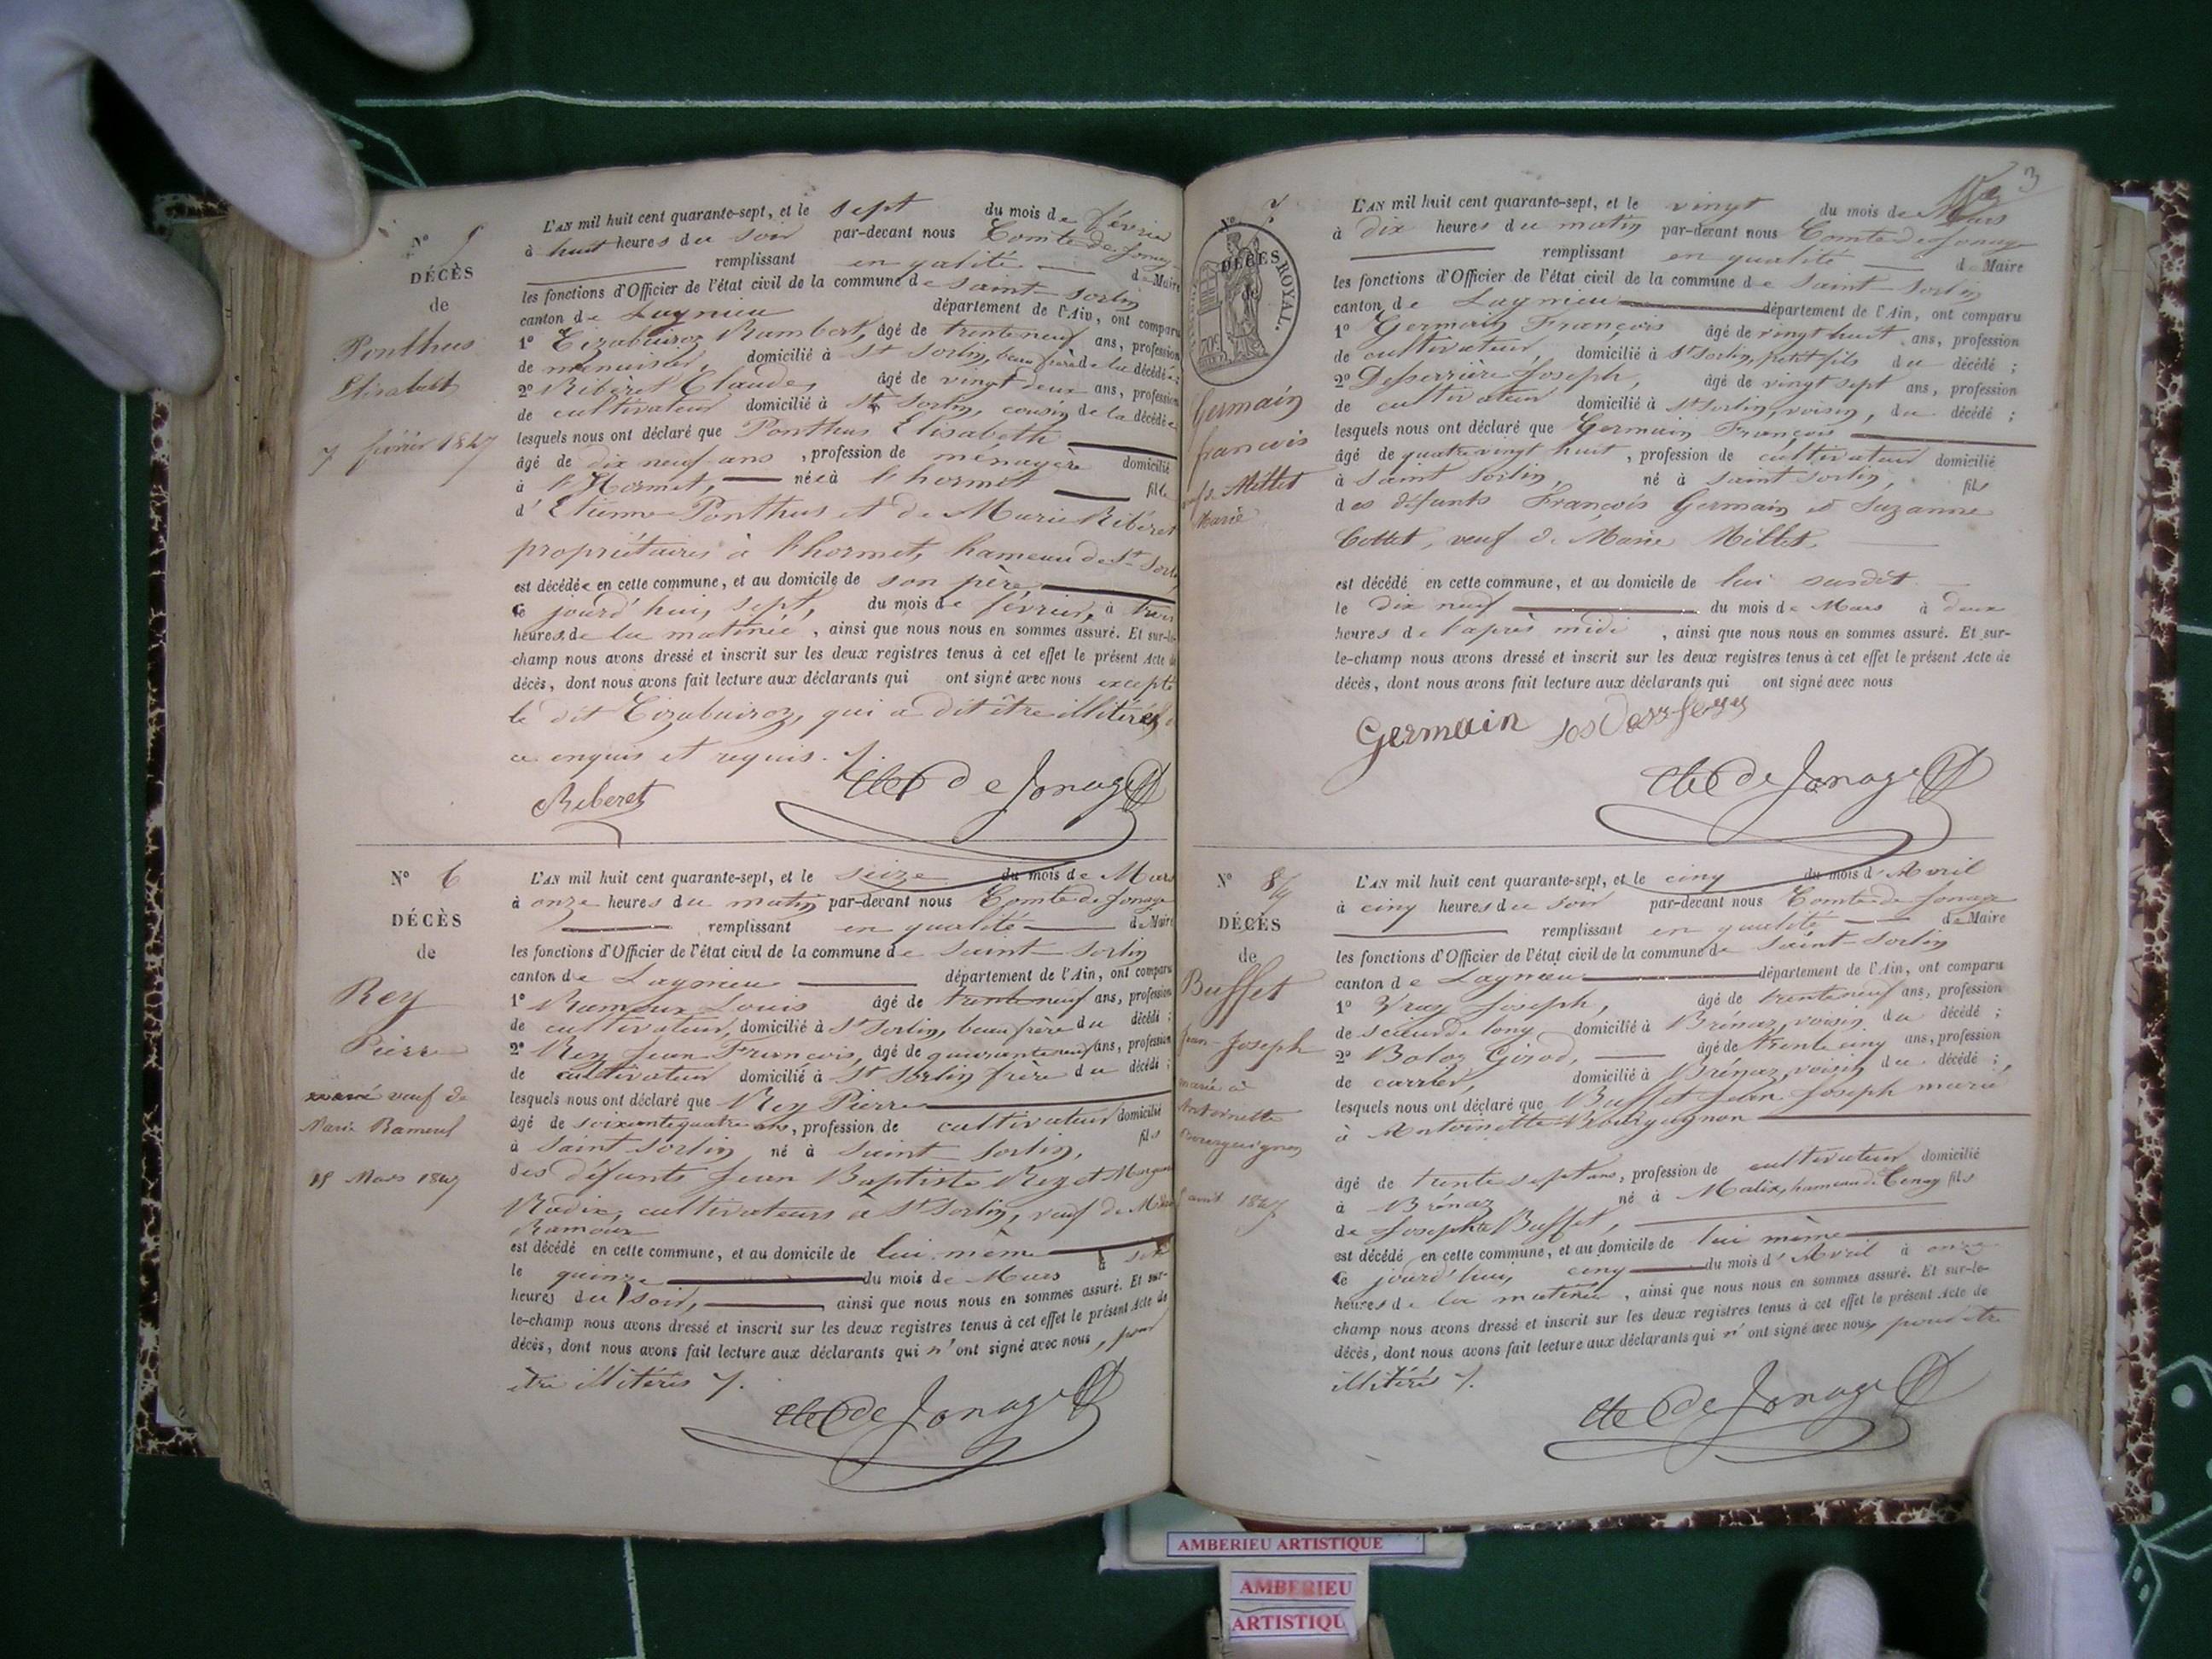 N° 5
DÉCÈS
de
Ponthus
Elisabeth
7 février 1847
L'AN mil huit cent quarante-sept, et le sept du mois de février
à huit heures du soir par-devant nous Comte de Jonage
remplissant en qualité de Maire
les fonctions d'Officier de l'état civil de la commune de Saint-Sorlin
canton de Lagnieu département de l'Ain, ont comparu
1° Rambert, âgé de trente neuf ans, profession
de menuisier, domicilié à St Sorlin, beau frère de la décédée;
2° Riberet Claude, âgé de vingt deux ans, profession
de cultivateur domicilié à St Sorlin, cousin de la décédée
lesquels nous ont déclaré que Ponthus Elisabeth
âgé de dix neuf ans, profession de menagère domicilié
à l'Hormet, née à l'hormet fille
d'Etienne Ponthus et de Marie Riberet
propriétaires à l'hormet, hameau de St Sorlin
est décédée en cette commune, et au domicile de son père
ce jourd'hui, sept, du mois de février, à trois
heures de la matinée, ainsi que nous nous en sommes assuré. Et sur-le-
champ nous avons dressé et inscrit sur les deux registres tenus à cet effet le présent Acte de
décès, dont nous avons fait lecture aux déclarants qui ont signé avec nous excepté
le dit qui a dit être illitéré
a enquis et requis.
Riberet
Cte de Jonage
N° 6
DÉCÈS
de
Rey
Pierre
veuf de
Marie Rameux
15 Mars 1847
L'AN mil huit cent quarante-sept, et le seize du mois de Mars
à onze heures du matin par-devant nous Comte de Jonage
remplissant en qualité de Maire
les fonctions d'Officier de l'état civil de la commune de Saint-Sorlin
canton de Lagnieu département de l'Ain, ont comparu
1° Rameux Louis âgé de trente neuf ans, profession
de cultivateur, domicilié à St Sorlin, beau frère du décédé;
2° Rey Jean François, âgé de quarante neuf ans, profession
de cultivateur domicilié à St Sorlin frère du décédé;
lesquels nous ont déclaré que Rey Pierre
âgé de soixante quatre ans, profession de cultivateur domicilié
à Saint Sorlin né à Saint Sorlin, fils
des défunts Jean Baptiste Rey et
Rodix, cultivateurs à St Sorlin, veuf de Marie
Rameux
est décédé en cette commune, et au domicile de lui même
le quinze du mois de Mars à six
heures du soir, ainsi que nous nous en sommes assuré. Et sur-
le-champ nous avons dressé et inscrit sur les deux registres tenus à cet effet le présent Acte de
décès, dont nous avons fait lecture aux déclarants qui n'ont signé avec nous, pour
être illitérés
Cte de Jonage
3
N° 7
DÉCÈS
de
ROYAL.
70c
Germain
françois
Millet
Marie
L'AN mil huit cent quarante-sept, et le vingt du mois de Mars
à dix heures du matin par-devant nous Comte de Jonage
remplissant en qualité de Maire
les fonctions d'Officier de l'état civil de la commune de Saint-Sorlin
canton de Lagnieu département de l'Ain, ont comparu
1° Germain François âgé de vingt huit ans, profession
de cultivateur, domicilié à St Sorlin, petit fils du décédé;
2° Desserrière Joseph, âgé de vingt sept ans, profession
de cultivateur domicilié à St Sorlin, voisin, du décédé;
lesquels nous ont déclaré que Germain François
âgé de quatre vingt huit, profession de cultivateur domicilié
à Saint Sorlin, né à Saint Sorlin, fils
des défunts François Germain et Suzanne
Cottet, veuf de Marie Millet,
est décédé en cette commune, et au domicile de lui susdit
le dix neuf du mois de Mars à deux
heures de l'après midi, ainsi que nous nous en sommes assuré. Et sur-
le-champ nous avons dressé et inscrit sur les deux registres tenus à cet effet le présent Acte de
décès, dont nous avons fait lecture aux déclarants qui ont signé avec nous
Germain
Cte de Jonage
N° 8
DÉCÈS
de
Buffet
Jean-Joseph
marié à
Antoinette
Bourguignon
5 avril 1847
L'AN mil huit cent quarante-sept, et le cinq du mois d'Avril
à cinq heures du soir par-devant nous Comte de Jonage
remplissant en qualité de Maire
les fonctions d'Officier de l'état civil de la commune de Saint-Sorlin
canton de Lagnieu département de l'Ain, ont comparu
1° Vray Joseph, âgé de trente neuf ans, profession
de scieur de long domicilié à Brénaz, voisin du décédé;
2° Boloz Girod, âgé de trente cinq ans, profession
de carrier, domicilié à Brénaz, voisin du décédé;
lesquels nous ont déclaré que Buffet Jean Joseph marié
à Antoinette Bourguignon
âgé de trente sept ans, profession de cultivateur domicilié
à Brénaz né à Malix, hameau de Tenay fils
de Joseph Buffet,
est décédé en cette commune, et au domicile de lui même
ce jourd'hui cinq du mois d'Avril à onze
heures de la matinée, ainsi que nous nous en sommes assuré. Et sur-le-
champ nous avons dressé et inscrit sur les deux registres tenus à cet effet le présent Acte de
décès, dont nous avons fait lecture aux déclarants qui n'ont signé avec nous, pour être
illitérés
Cte de Jonage
AMBERIEU ARTISTIQUE
AMBERIEU
ARTISTIQU